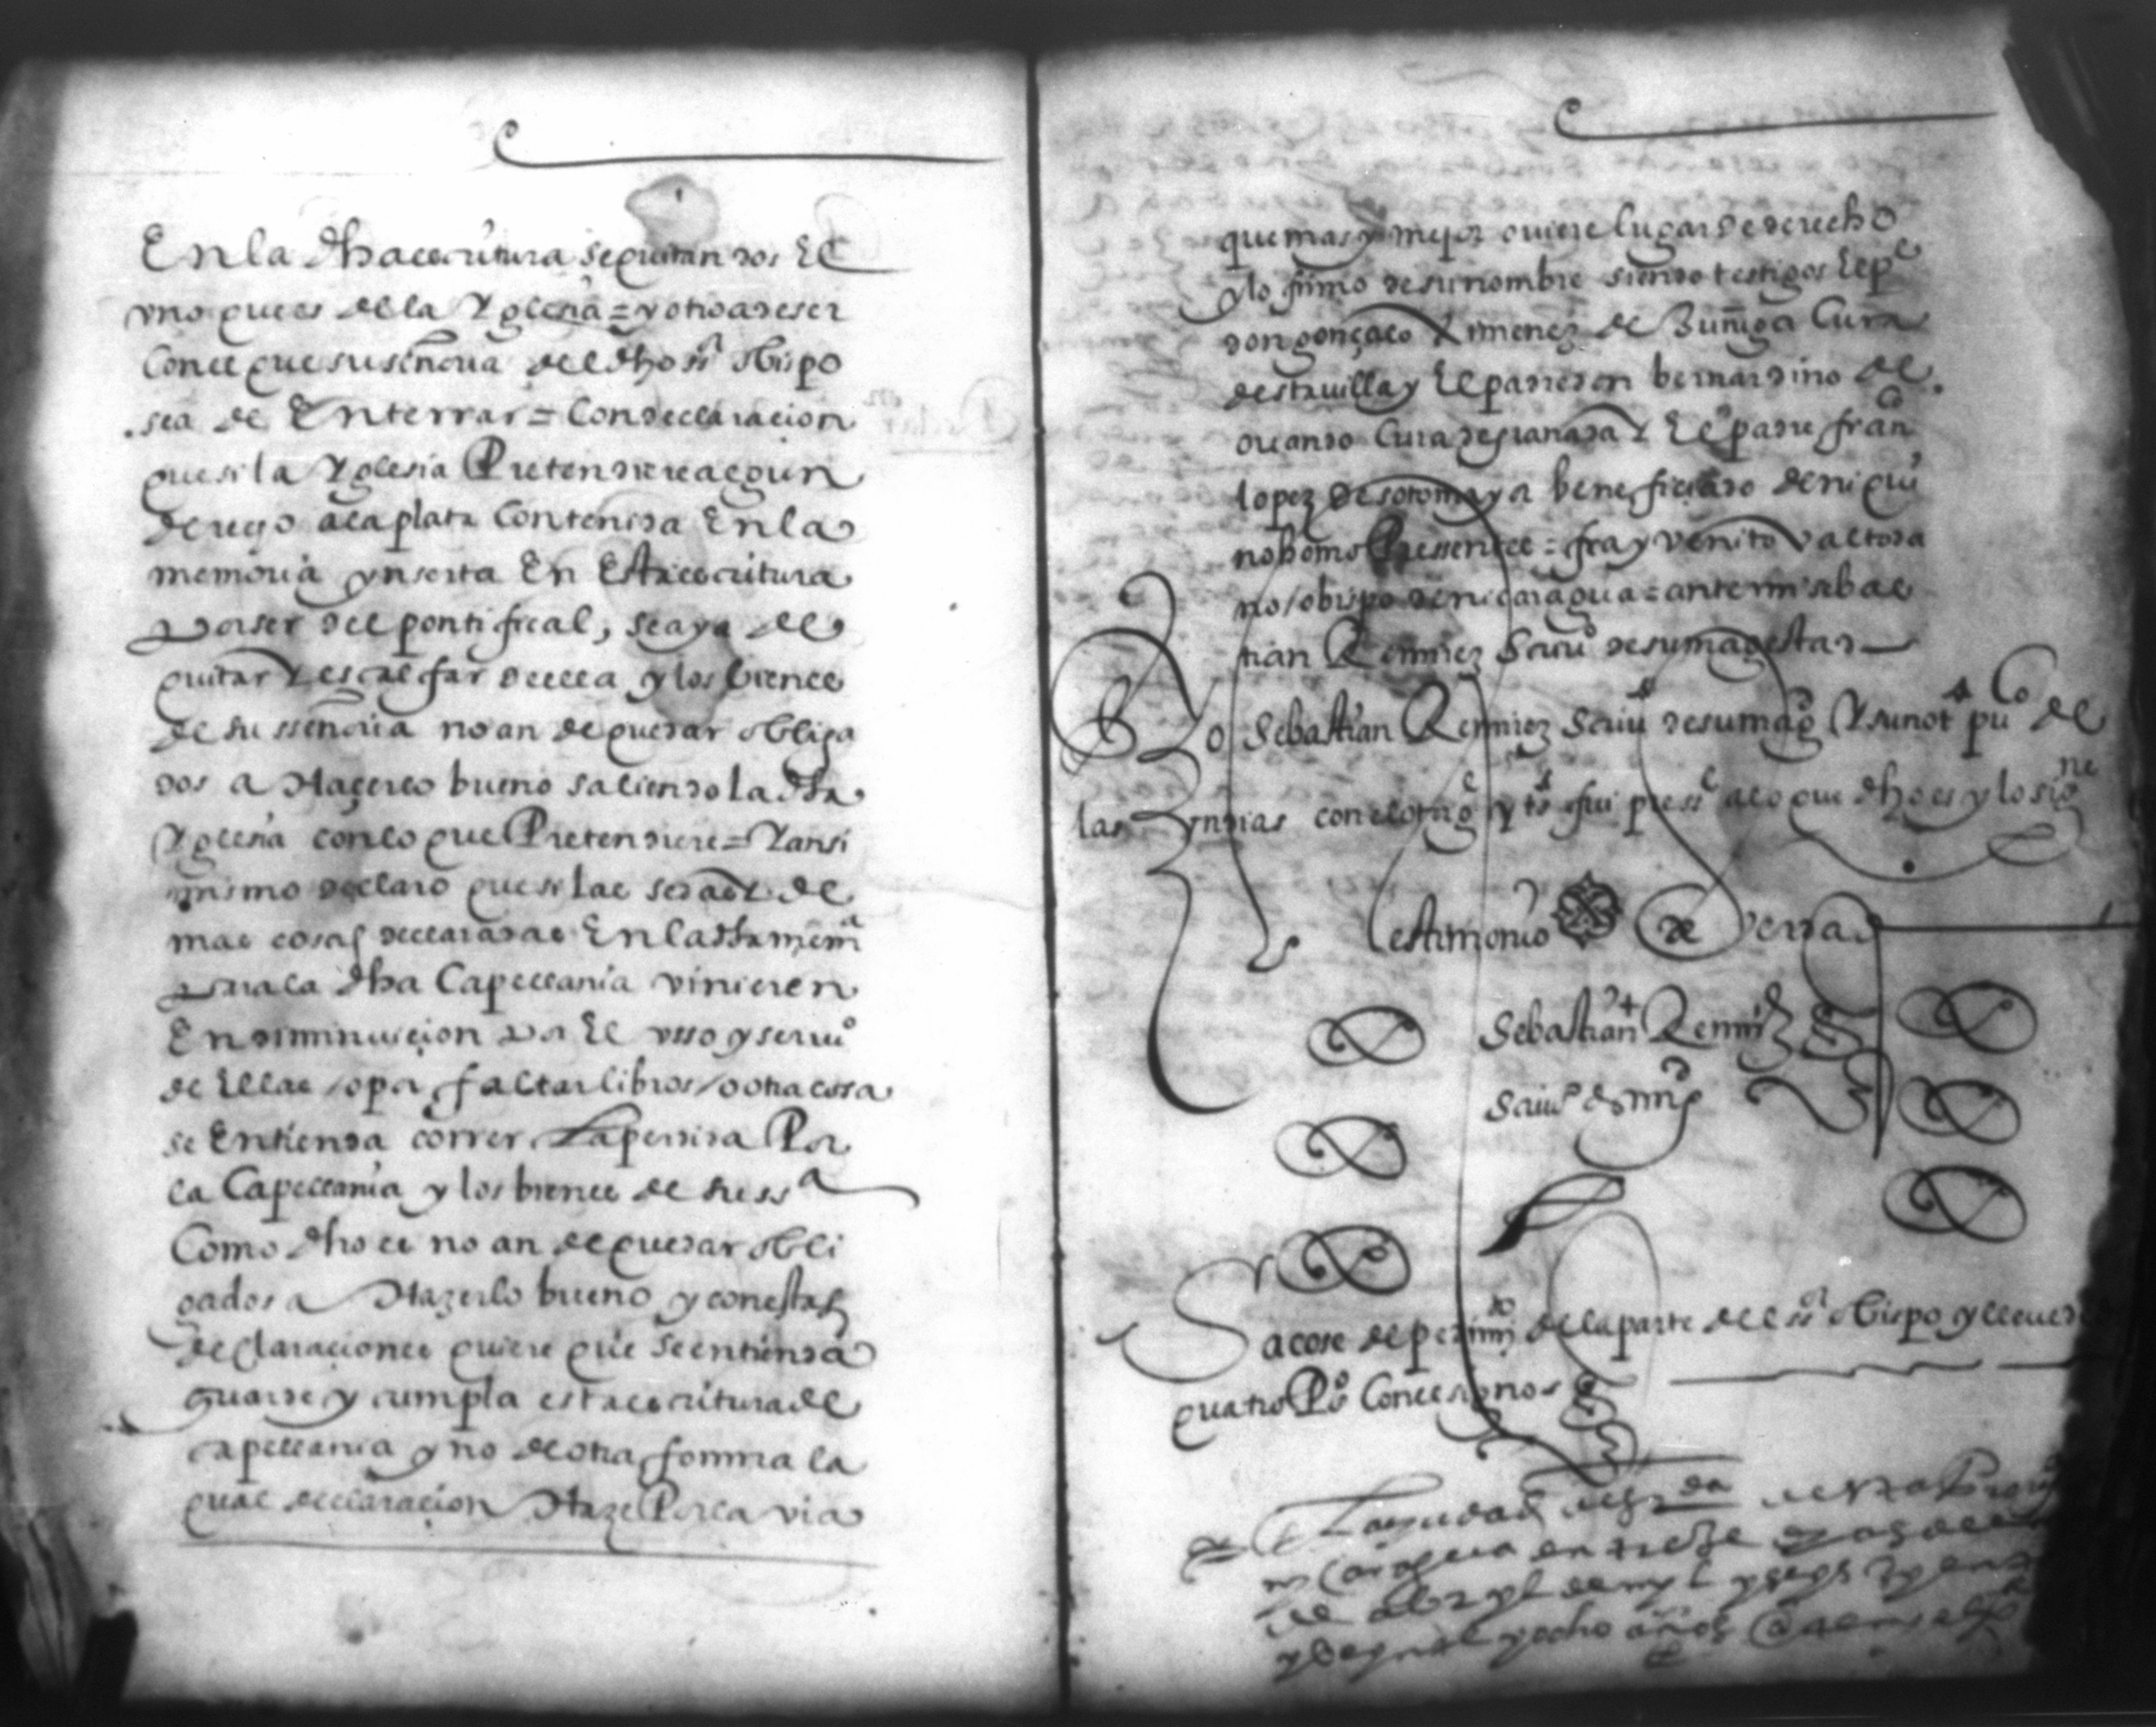 En la dha escritura se quitan dos El
vno que es de la Yglesia = y otro a de ser
Con el que su senoria del dho sr Obispo
sea de Enterrar = Con declaracion
que si la Yglesia Pretendiere algun
derecho a la plata Contenida En la
memoria ynserta En Esta escritura
por ser del pontifical, se aya de
quitar y escalfar de ella y los bienes
de su ssenoria no an de quedar obliga
dos a Haçerlo bueno saliendo la dha
Yglesia con lo que Pretendiere = Y ansi
mismo declaro que si las sedas y de
mas cosas declaradas En la dha mema
para la dha Capellania vinieren
En disminuicion por El vsso y seruio
de Ellas / o por faltar libros / o otra cosa
se Entienda correr La perdida Por
la Capellania y los bienes de su ssa
Como dho es no an de quedar obli
gados a Hazerlo bueno y con estas
declaraciones quiere que se entienda
guarde y cumpla esta escritura de
capellania y no de otra forma la
qual declaracion Haze Por la via
que mas y mejor ouiere lugar de derecho
y lo firmo de su nombre siendo testigos El pe
don gonçalo Ximenez de Zuñiga Cura
desta villa y El padre don bernardino de
ouando Cura de granada y El padre franco
lopez de sotomayor beneficiado de niqui
nohomo Pressentes = fray venito valtoda
no / obispo de nicaragua = ante mi sebas
tian Remirez Scriuo de su magestad
Yo Sebastian Remirez Scriuo de su magd Y su noto puco de
las yndias con el otorgte y tos fui presste a lo que dho es y lo signe
testimonio de verdad
Sebastian Remirez
Scriuo de mgd
Sacose de pedimto de la parte del sr Obispo y lleue de
quatro Pos Con el signo
de abryl de myl y seys
y ocho años